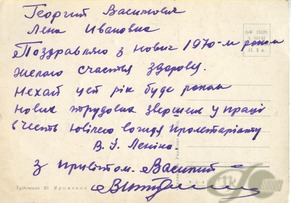 Георгий Василович
Лена Ивановна
Поздравляю з новим 1970-м роком
желаю счастья здоровя.
Нехай цей рік буде роком
нових трудових звершень у праці
в честь ювілею вождя пролетаріату
В. І. Леніна.
З привітом. Василий